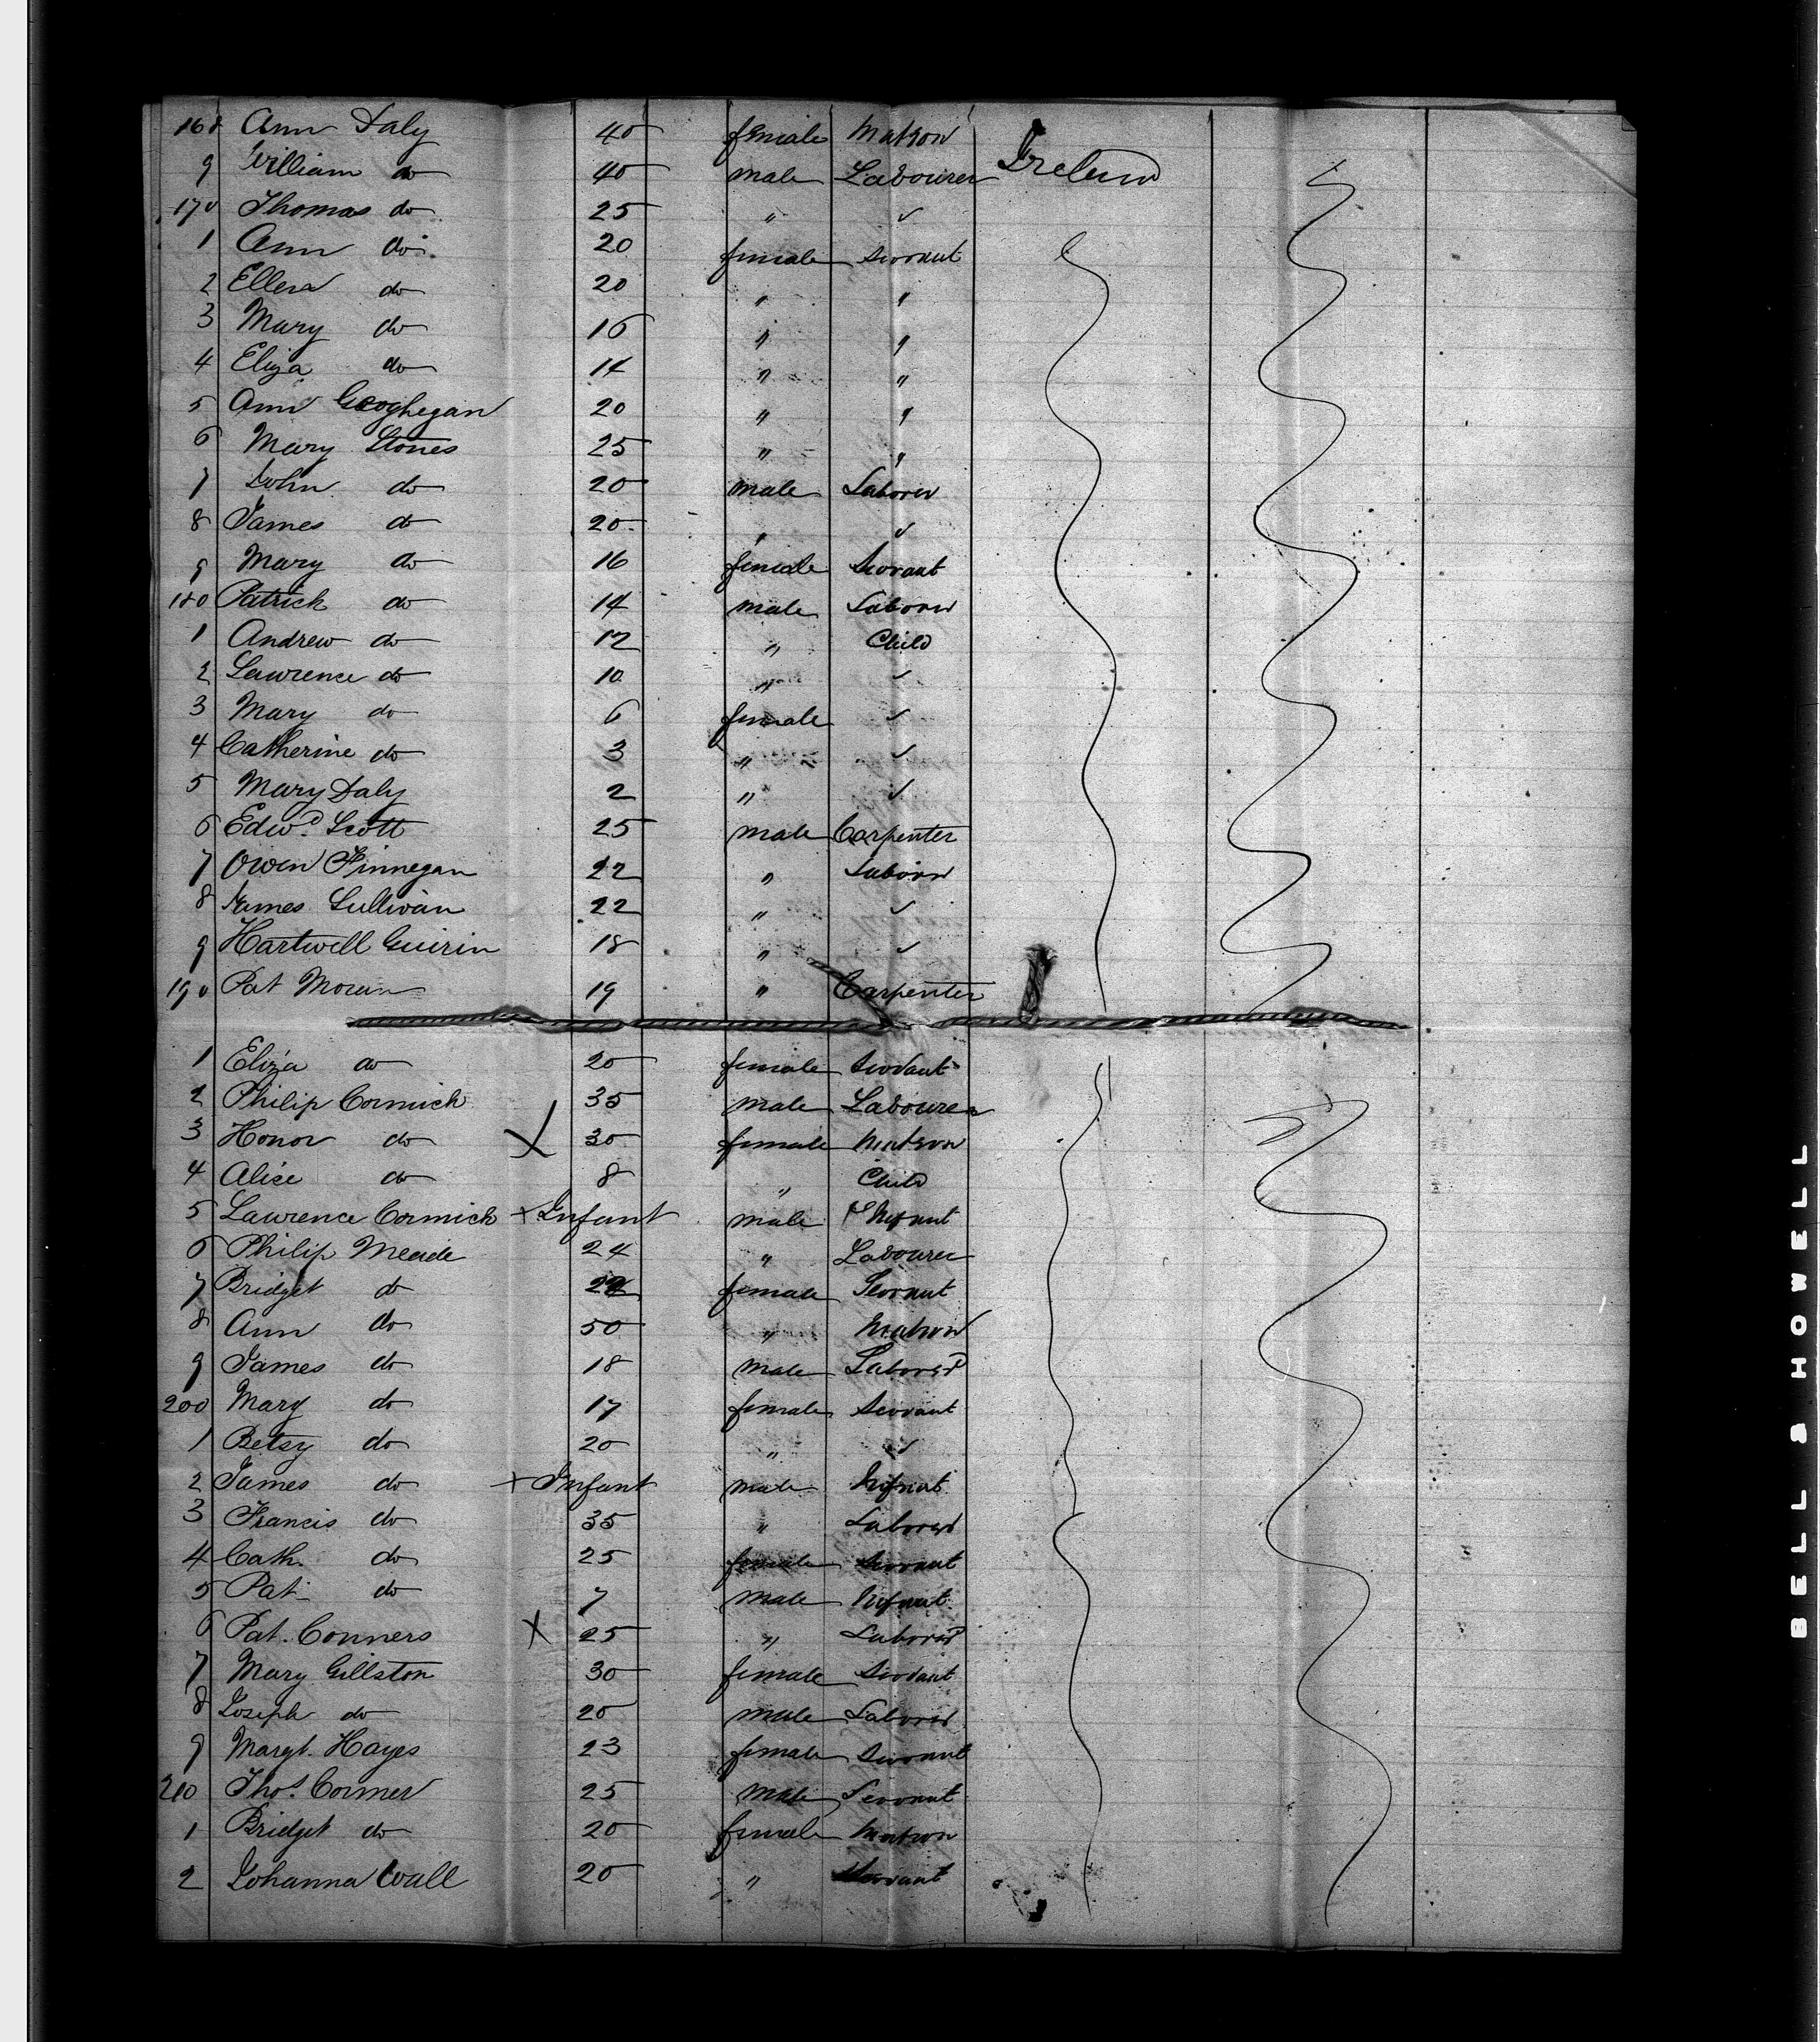 168 Ann Daly 40 female Matron
9 William do 40 male Labourer Ireland
170 Thomas do 25 " ✓
1 Ann do 20 female Servant
2 Ellen do 20 " "
3 Mary do 16 " "
4 Eliza do 14 " "
5 Ann Geoghegan 20 " "
6 Mary Stones 25 " "
7 John do 20 male Laborer
8 James do 20 " ✓
9 Mary do 16 female Servant
180 Patrick do 14 male Laborer
1 Andrew do 12 " Child
2 Lawrence do 10 " ✓
3 Mary do 6 female ✓
4 Catherine do 3 " ✓
5 Mary Daly 2 " ✓
6 Edwd. Scott 25 male Carpenter
7 Owen Finnegan 22 " Laborer
8 James Sullivan 22 " ✓
9 Hartwell Guirin 18 " ✓
190 Pat Moran 19 " Carpenter
1 Eliza do 20 female Servant
2 Philip Cormick 35 male Labourer
3 Honor do X 30 female Matron
4 Alice do 8 " Child
5 Lawrence Cormick + Infant male Infant
6 Philip Meade 24 " Labourer
7 Bridget do 22 female Servant
8 Ann do 50 " Matron
9 James do 18 male Laborer
200 Mary do 17 female Servant
1 Betsy do 20 " ✓
2 James do + Infant male Infant
3 Francis do 35 " Laborer
4 Cath. do 25 female Servant
5 Pat do 7 male Infant
6 Pat. Conners X 25 " Laborer
7 Mary Gillston 30 female Servant
8 Joseph do 20 male Laborer
9 Margt. Hayes 23 female Servant
210 Thos. Cormer 25 male Servant
1 Bridget do 20 female Matron
2 Johanna Wall 20 " Servant
BELL & HOWELL